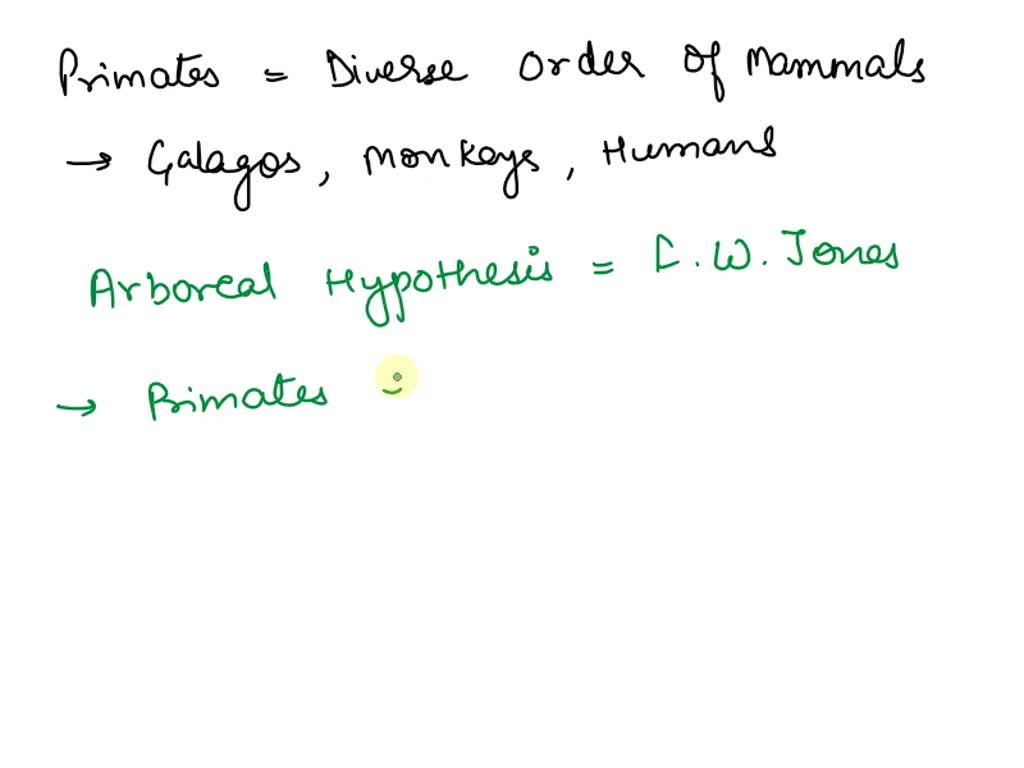 Primates = Diverse Order Of Mammals
→ Galagos, Monkeys, Humans
Arboreal Hypothesis = . W. Jones
→ Primates =